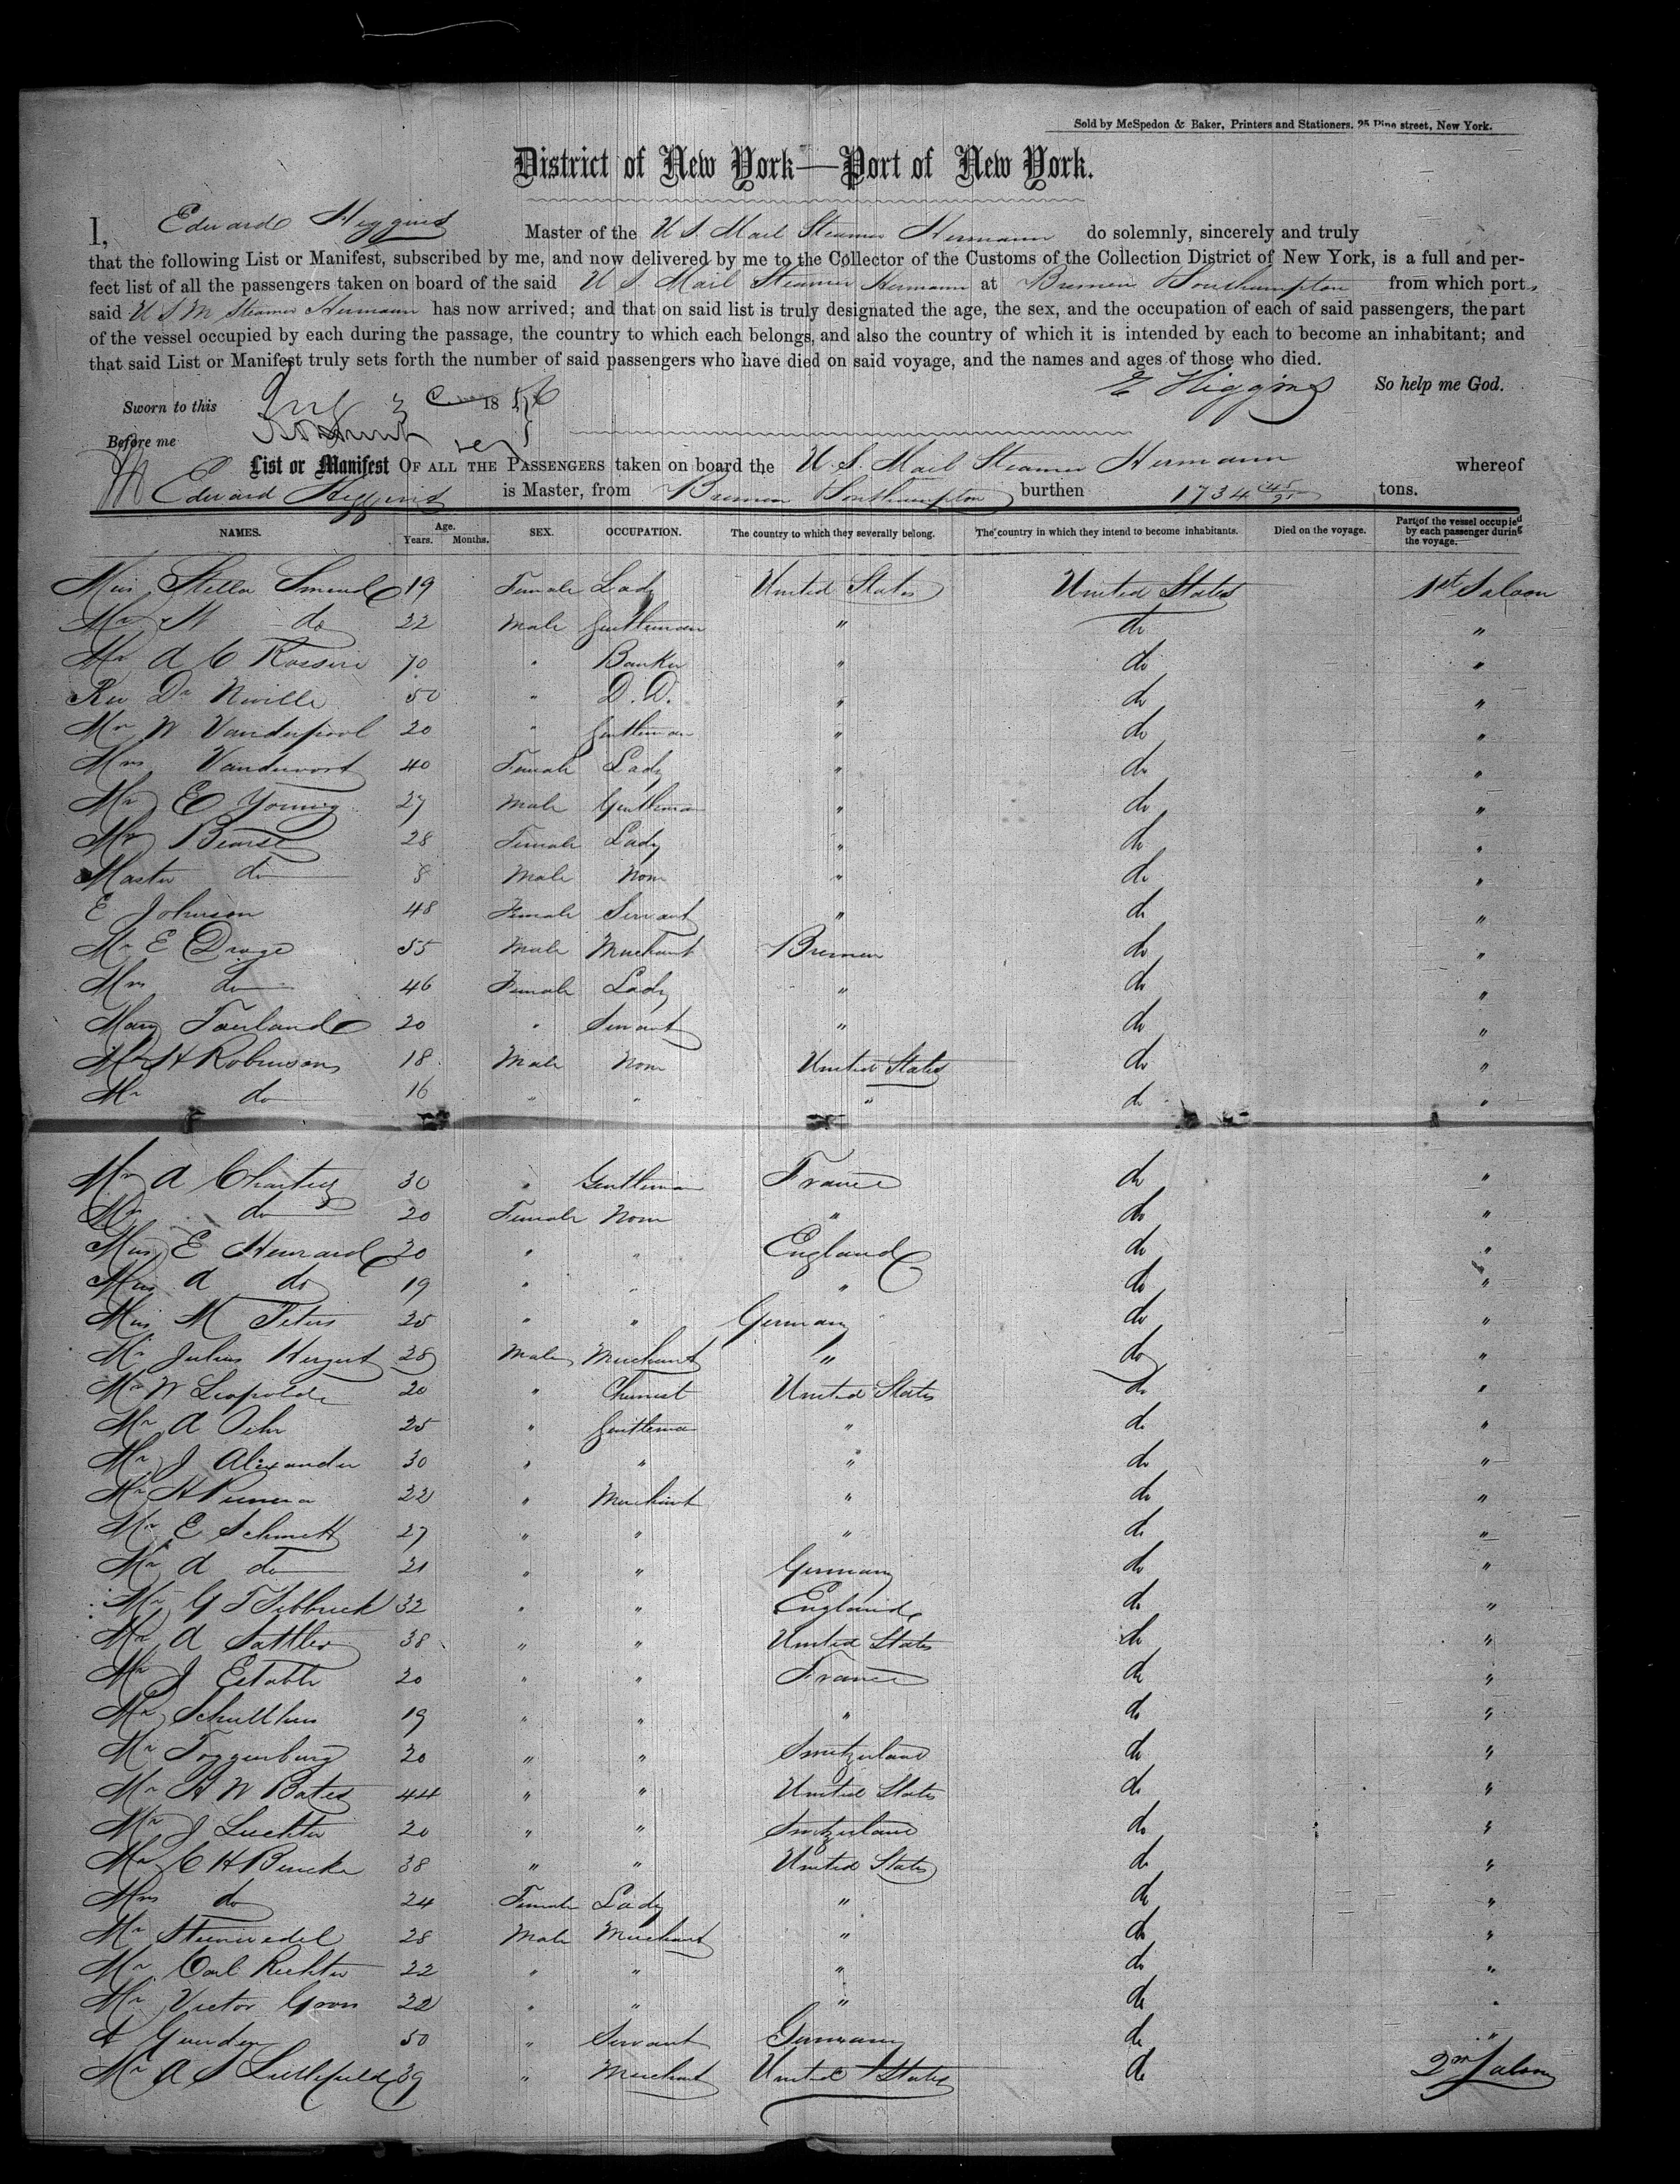 Sold by McSpedon & Baker, Printers and Stationers. 25 Pine street, New York.
District of New York—Port of New York.
I, Edward Higgins Master of the U S. Mail Steamer Hermann do solemnly, sincerely and truly
that the following List or Manifest, subscribed by me, and now delivered by me to the Collector of the Customs of the Collection District of New York, is a full and per-
fect list of all the passengers taken on board of the said U S. Mail Steamer Hermann at Bremen Southampton from which ports
said U S M Steamer Hermann has now arrived; and that on said list is truly designated the age, the sex, and the occupation of each of said passengers, the part
of the vessel occupied by each during the passage, the country to which each belongs, and also the country of which it is intended by each to become an inhabitant; and
that said List or Manifest truly sets forth the number of said passengers who have died on said voyage, and the names and ages of those who died.
E Higgins So help me God.
Sworn to this 18
Before me
List or Manifest OF ALL THE PASSENGERS taken on board the U. S. Mail Steamer Hermann whereof
Edward Higgins is Master, from Bremen Southampton burthen 1734 45/95 tons.
NAMES. Age. Years. Months. SEX. OCCUPATION. The country to which they severally belong. The country in which they intend to become inhabitants. Died on the voyage. Part of the vessel occupied by each passenger during the voyage.
Miss Stella 19 Female Lady United States United States 1st Saloon
Mr do 22 Male Gentleman " do "
Mr A C 70 " Banker " do "
Rev Dr Neville 50 " D. D. " do "
Mr W Vanderpool 20 " Gentleman " do "
Mrs Vandervort 40 Female Lady " do "
Mr E Young 27 Male Gentleman " do "
28 Female Lady " do "
Master do 8 Male None " do "
E Johnson 48 Female Servant " do "
Mr E 55 Male Merchant Bremen do "
Mrs do 46 Female Lady " do "
Mary 20 " Servant " do "
Mr H Robinson 18 Male None United States do "
Mr do 16 " " " do "
Mr A 30 " Gentleman France do "
do 20 Female None " do "
Miss E 20 " " England do "
Miss A do 19 " " " do "
Miss M Peters 25 " " Germany do "
Mr Julius 28 Male Merchant " do "
Mr W Leopold 20 " Chemist United States do "
Mr A 25 " Gentleman " do "
Mr J Alexander 30 " " " do "
Mr H 22 " Merchant " do "
Mr E Schmitt 27 " " " do "
Mr A do 21 " " Germany do "
Mr G F 32 " " England do "
Mr A Sattler 38 " " United States do "
Mr J 20 " " France do "
Mr 19 " " " do "
Mr Toggenburg 20 " " Switzerland do "
Mr H W Bates 44 " " United States do "
Mr J 20 " " Switzerland do "
Mr C H 38 " " United States do "
Mrs do 24 Female Lady " do "
Mr 28 Male Merchant " do "
Mr Carl Richter 22 " " " do "
Mr Victor 22 " " " do "
A 50 " Servant Germany do "
Mr A S Littlefield 39 " Merchant United States do 2nd Saloon